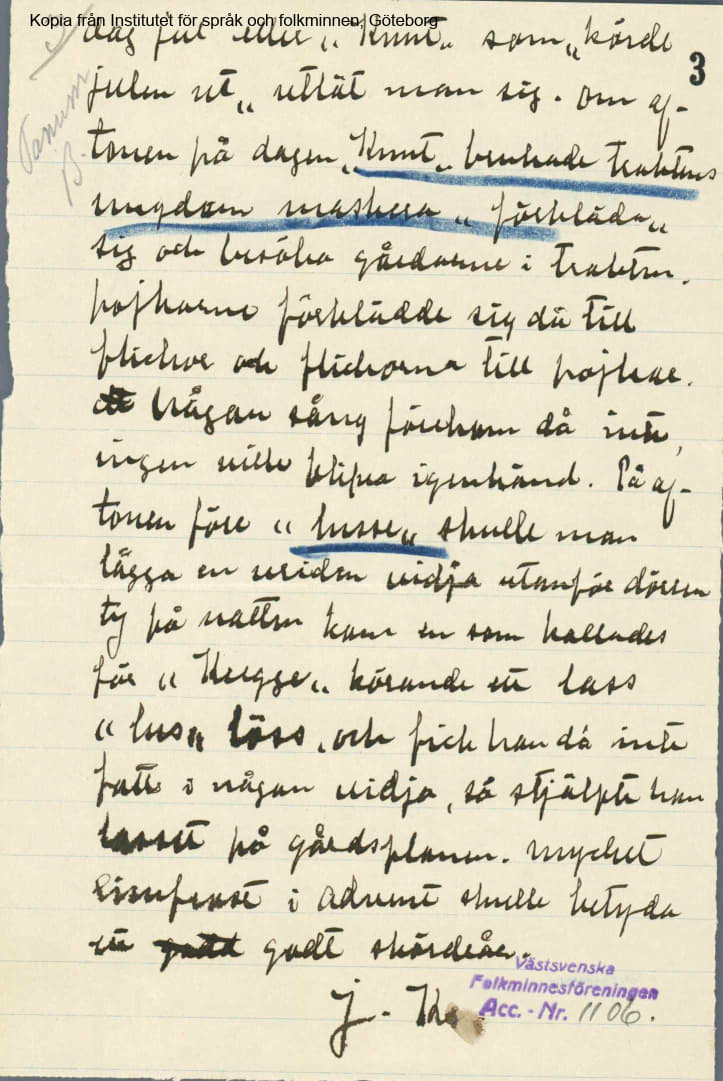 Kopia från Institutet för språk och folkminnen, Göteborg
dag jul eller "Knut" som "körde
3
julen ut" uttåt man sig. Om af-
Tanum
B.
tonen på dagen "Knut" brukade traktens
ungdom maskera "förkläda"
sig och besöka gårdarne i trakten.
pojkarne förklädde sig då till
flickor och flickorna till pojkar.
Någon sång förekom då inte,
ingen ville blifva igenkänd. På af-
tonen före "lusse" skulle man
lägga en vriden vidja utanför dörren
ty på natten kom en som kallades
för " " körande ett lass
"lus" löss, och fick han då inte
fatt i någon vidja, så stjälpte han
lasset på gårdsplanen. Mycket
rimfrost i advent skulle betyda
ett godt skördeår.
J. K
Västsvenska
Folkminnesföreningen
Acc. - Nr. 1106.